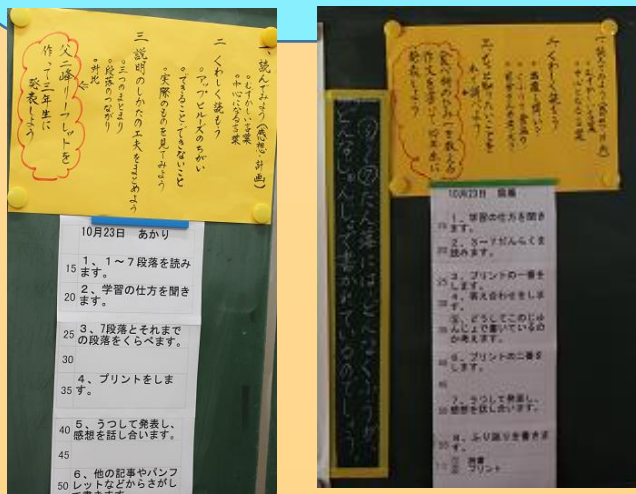 一、読んでみよう（感想・計画）
。むずかしい言葉
。中心になる言葉
二 くわしく読もう
。アップとルーズのちがい
。できることとできないこと
。実際のものを見てみよう
三 説明のしかたの工夫をまとめよう
。三つのまとまり
。段落のつながり
。対比
父二峰リーフレットを
作って三年生に
発表しよう
10月23日 あかり
15 1、1～7段落を読み
ます。
20 2、学習の仕方を聞き
ます。
25 3、7段落とそれまで
の段落をくらべます。
30
35 4、プリントをしま
す。
40 5、うつして発表し、
感想を話し合います。
45
50 6、他の記事やパンフ
レットなどからさがし
二、くわしく読もう
発表しよう
③～⑦だん落には、どんなくふうが、
どんなじゅんじょで書かれているのでしょう。
10月23日
1、学習の仕方を聞き
ます。
2、3～7だんらくを
読みます。
3、プリントの一番を
します。
4、答え合わせをしま
す。
5、どうしてこのじゅ
んじょで書いているの
か考えます。
6、プリントの二番を
します。
7、うつして発表し、
感想を話し合います。
8、ふり返りを書きま
す。
プリント